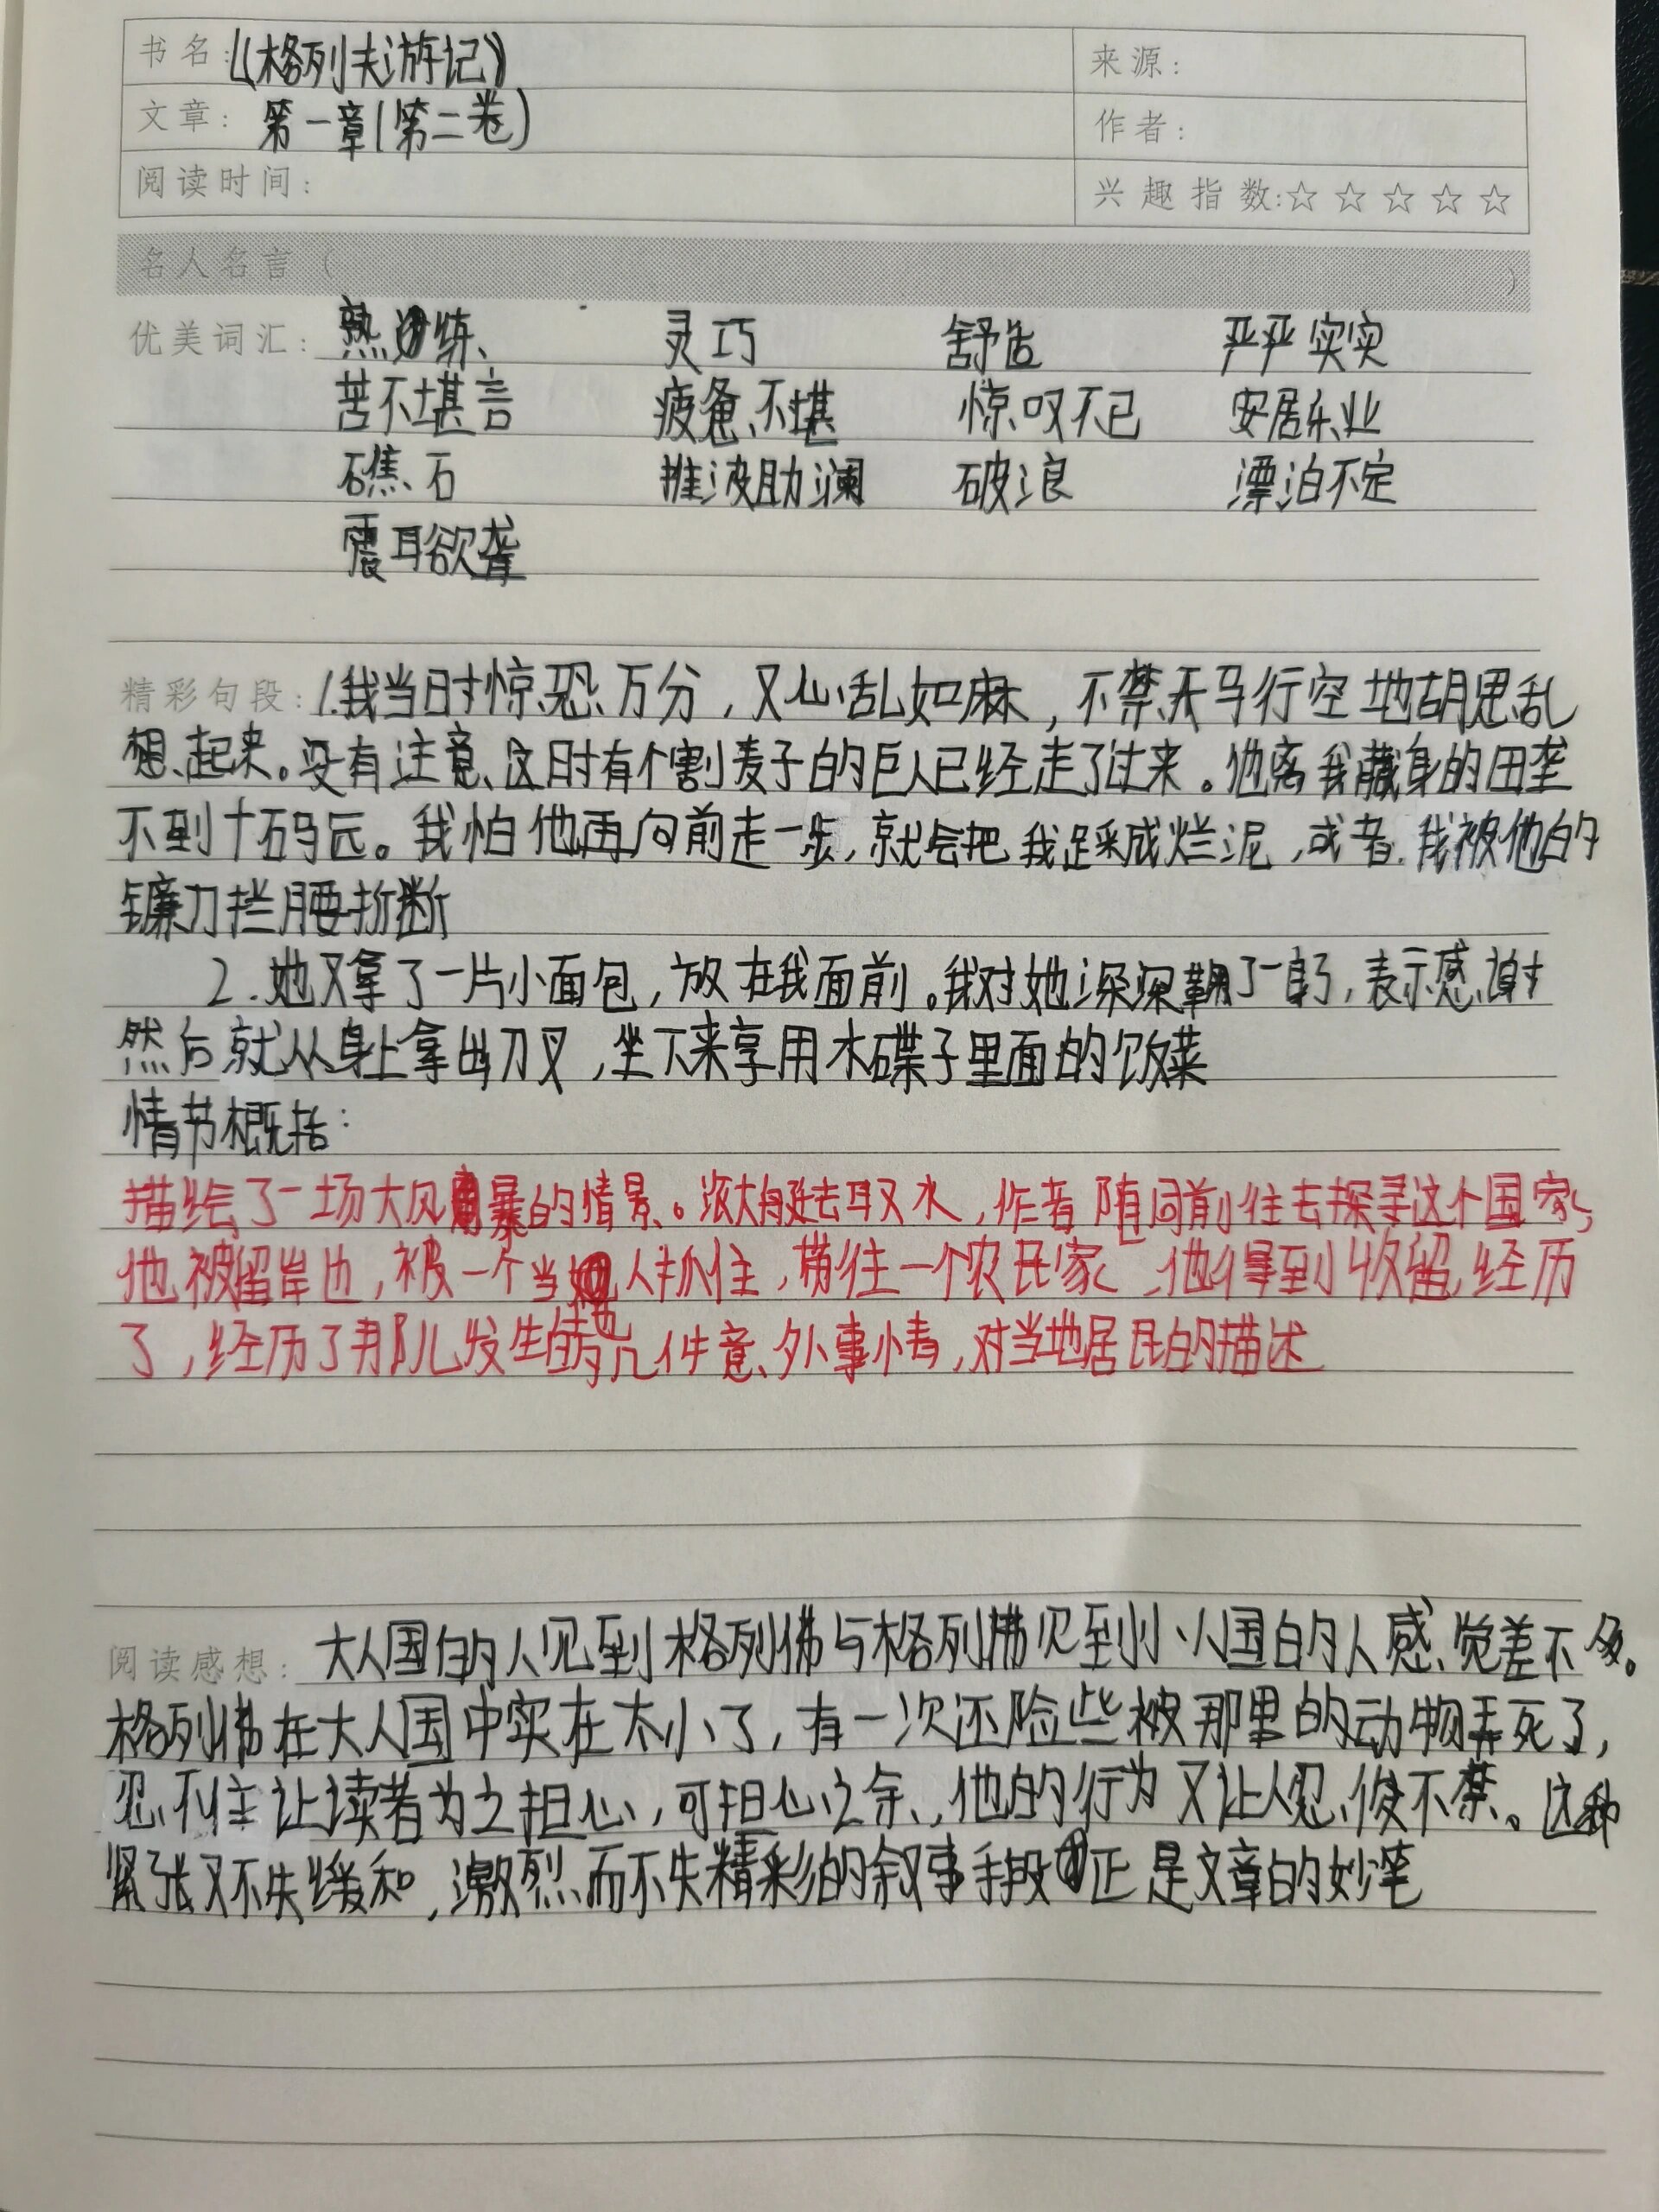 书名:《格列夫游记》 来源:
文章: 第一章(第二卷) 作者:
阅读时间: 兴趣指数:☆☆☆☆☆
名人名言( )
优美词汇: 熟练、 灵巧 舒适 严严实实
苦不堪言 疲惫不堪 惊叹不已 安居乐业
礁石 推波助澜 破浪 漂泊不定
震耳欲聋
精彩句段: 1.我当时惊恐万分,又心乱如麻,不禁天马行空地胡思乱
想起来。没有注意这时有个割麦子的巨人已经走了过来。他离我藏身的田垄
不到十码远。我怕他再向前走一步,就会把我踩成烂泥,或者我被他的
镰刀拦腰折断
2.她又拿了一片小面包,放在我面前。我对她深深鞠了一躬,表示感谢
然后就从身上拿出刀叉,坐下来享用木碟子里面的饭菜
情节概括:
描绘了一场大风暴的情景。派大艇去取水,作者随同前往去探寻这个国家,
他被留岸边,被一个当地人抓住,带往一个农民家,他得到收留,经历
了,经历了那儿发生的几件意外事情,对当地居民的描述
阅读感想: 大人国的人见到格列佛与格列佛见到小人国的人感觉差不多。
格列佛在大人国中实在太小了,有一次还险些被那里的动物弄死了,
忍不住让读者为之担心,可担心之余,他的行为又让人忍俊不禁。这种
紧张又不失缓和,激烈而不失精彩的叙事手段正是文章的妙笔